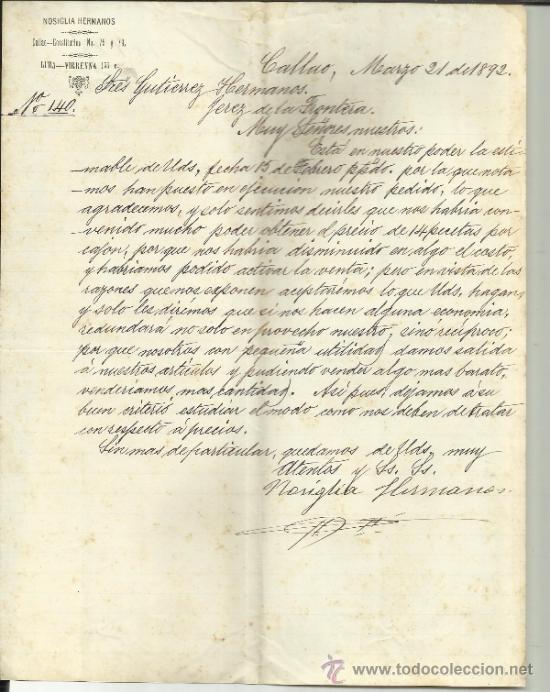 NOSIGLIA HERMANOS
Callao—Constitución No. 75 y
LIMA—VIRREYNA 151
Callao, Marzo 21 de 1892.
Sres Gutierrez Hermanos.
No 140.
Jerez de la Frontera.
Muy Señores nuestros:
Está en nuestro poder la esti-
mable de Uds, fecha 15 de Febrero ppdo. por la que nota-
mos han puesto en ejecucion nuestro pedido, lo que
agradecemos, y solo sentimos decirles que nos habria con-
venido mucho poder obtener el precio de 14 pesetas por
cajon; por que nos habria disminuido en algo el costo,
y habriamos podido activar la venta; pero en vista de las
razones que nos exponen aceptarémos lo que Uds, hagan,
y solo les dirémos que si nos hacen alguna economia,
redundará no solo en provecho nuestro, sino recíproco;
por que nosotros con pequeña utilidad damos salida
á nuestros artículos y pudiendo vender algo mas barato,
venderiamos mas cantidad. Así pues, dejamos á su
buen criterio, estudiar el modo como nos deben de tratar
con respecto á precios.
Sin mas, de particular, quedamos de Uds, muy
Atentos y Ss. Ss.
Nosiglia Hermanos
www.todocoleccion.net